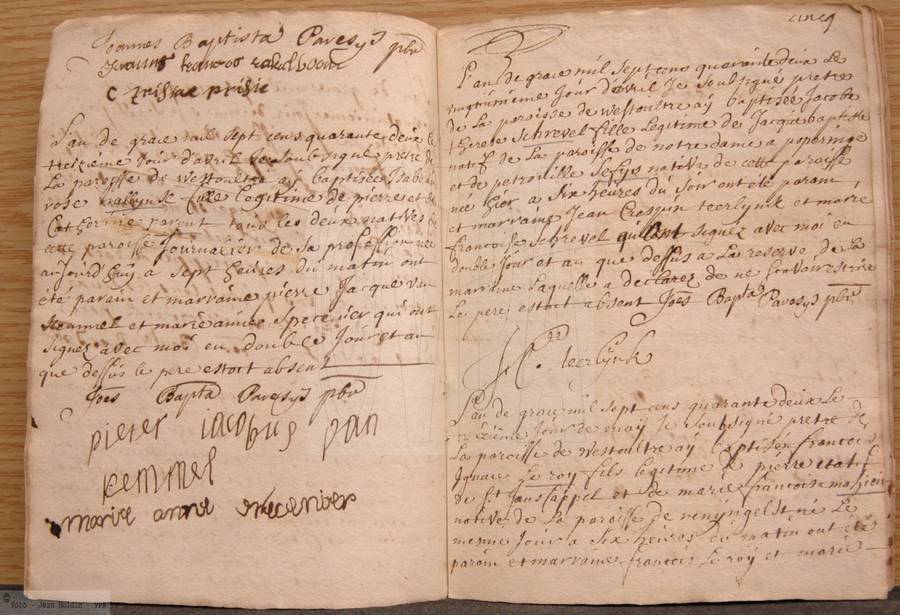 Joannes Baptista Pavesÿs pbr
L'an de grace mil sept cens quarante deux le
treizieme jour d'avril Je soubsigné prêtre de
La paroisse de Westoutre aÿ baptisée Isabelle
rose fille legitime de pierre et de
Catherine parent tous les deux natives de
cette paroisse Journalier de sa profession née
aujourd'huÿ a sept heures du matin ont
été parain et marraine pierre Jacque van
Kemmel et marie anne Specenier qui ont
signez avec moi en double Jour et an
que dessus le pere estoit absent
Joes Bapta Pavesÿs pbr
pieter iacobus van
kemmel
marie anne specenier
cincq
L'an de grace mil sept cens quarante deux Le
vingtunième Jour d'avril Je soubsigné pretre
de La paroisse de westoutre aÿ baptisée Jacoba
therese Schrevel fille Legitime de Jacquebaptiste
natif de La paroisse de notre dame a poperinge
et de petronille native de cette paroisse
née hier a six heures du Soir ont été parain
et marraine Jean Crespin teerlynk et marie
francoise Schrevel qui ont signez avec moi en
double Jour et an que dessus a La reserve de La
marraine Laquelle a declarez de ne scavoir escrire
Le pere estoit absent Joes Bapta Pavesÿs pbr
J C teerlynk
L'an de grace mil sept cens quarante deux Le
Jour de maÿ Je soubsigné pretre de
La paroisse de westoutre aÿ baptisé francois
Ignace Le roy fils legitime de pierre natif
de St Jans Cappel et de marie francoise
native de La paroisse de renyngelst né Le
mesme Jour a six heures du matin ont été
parain et marraine francois Le roÿ et marie
© foto - Jean Boldin - VVF